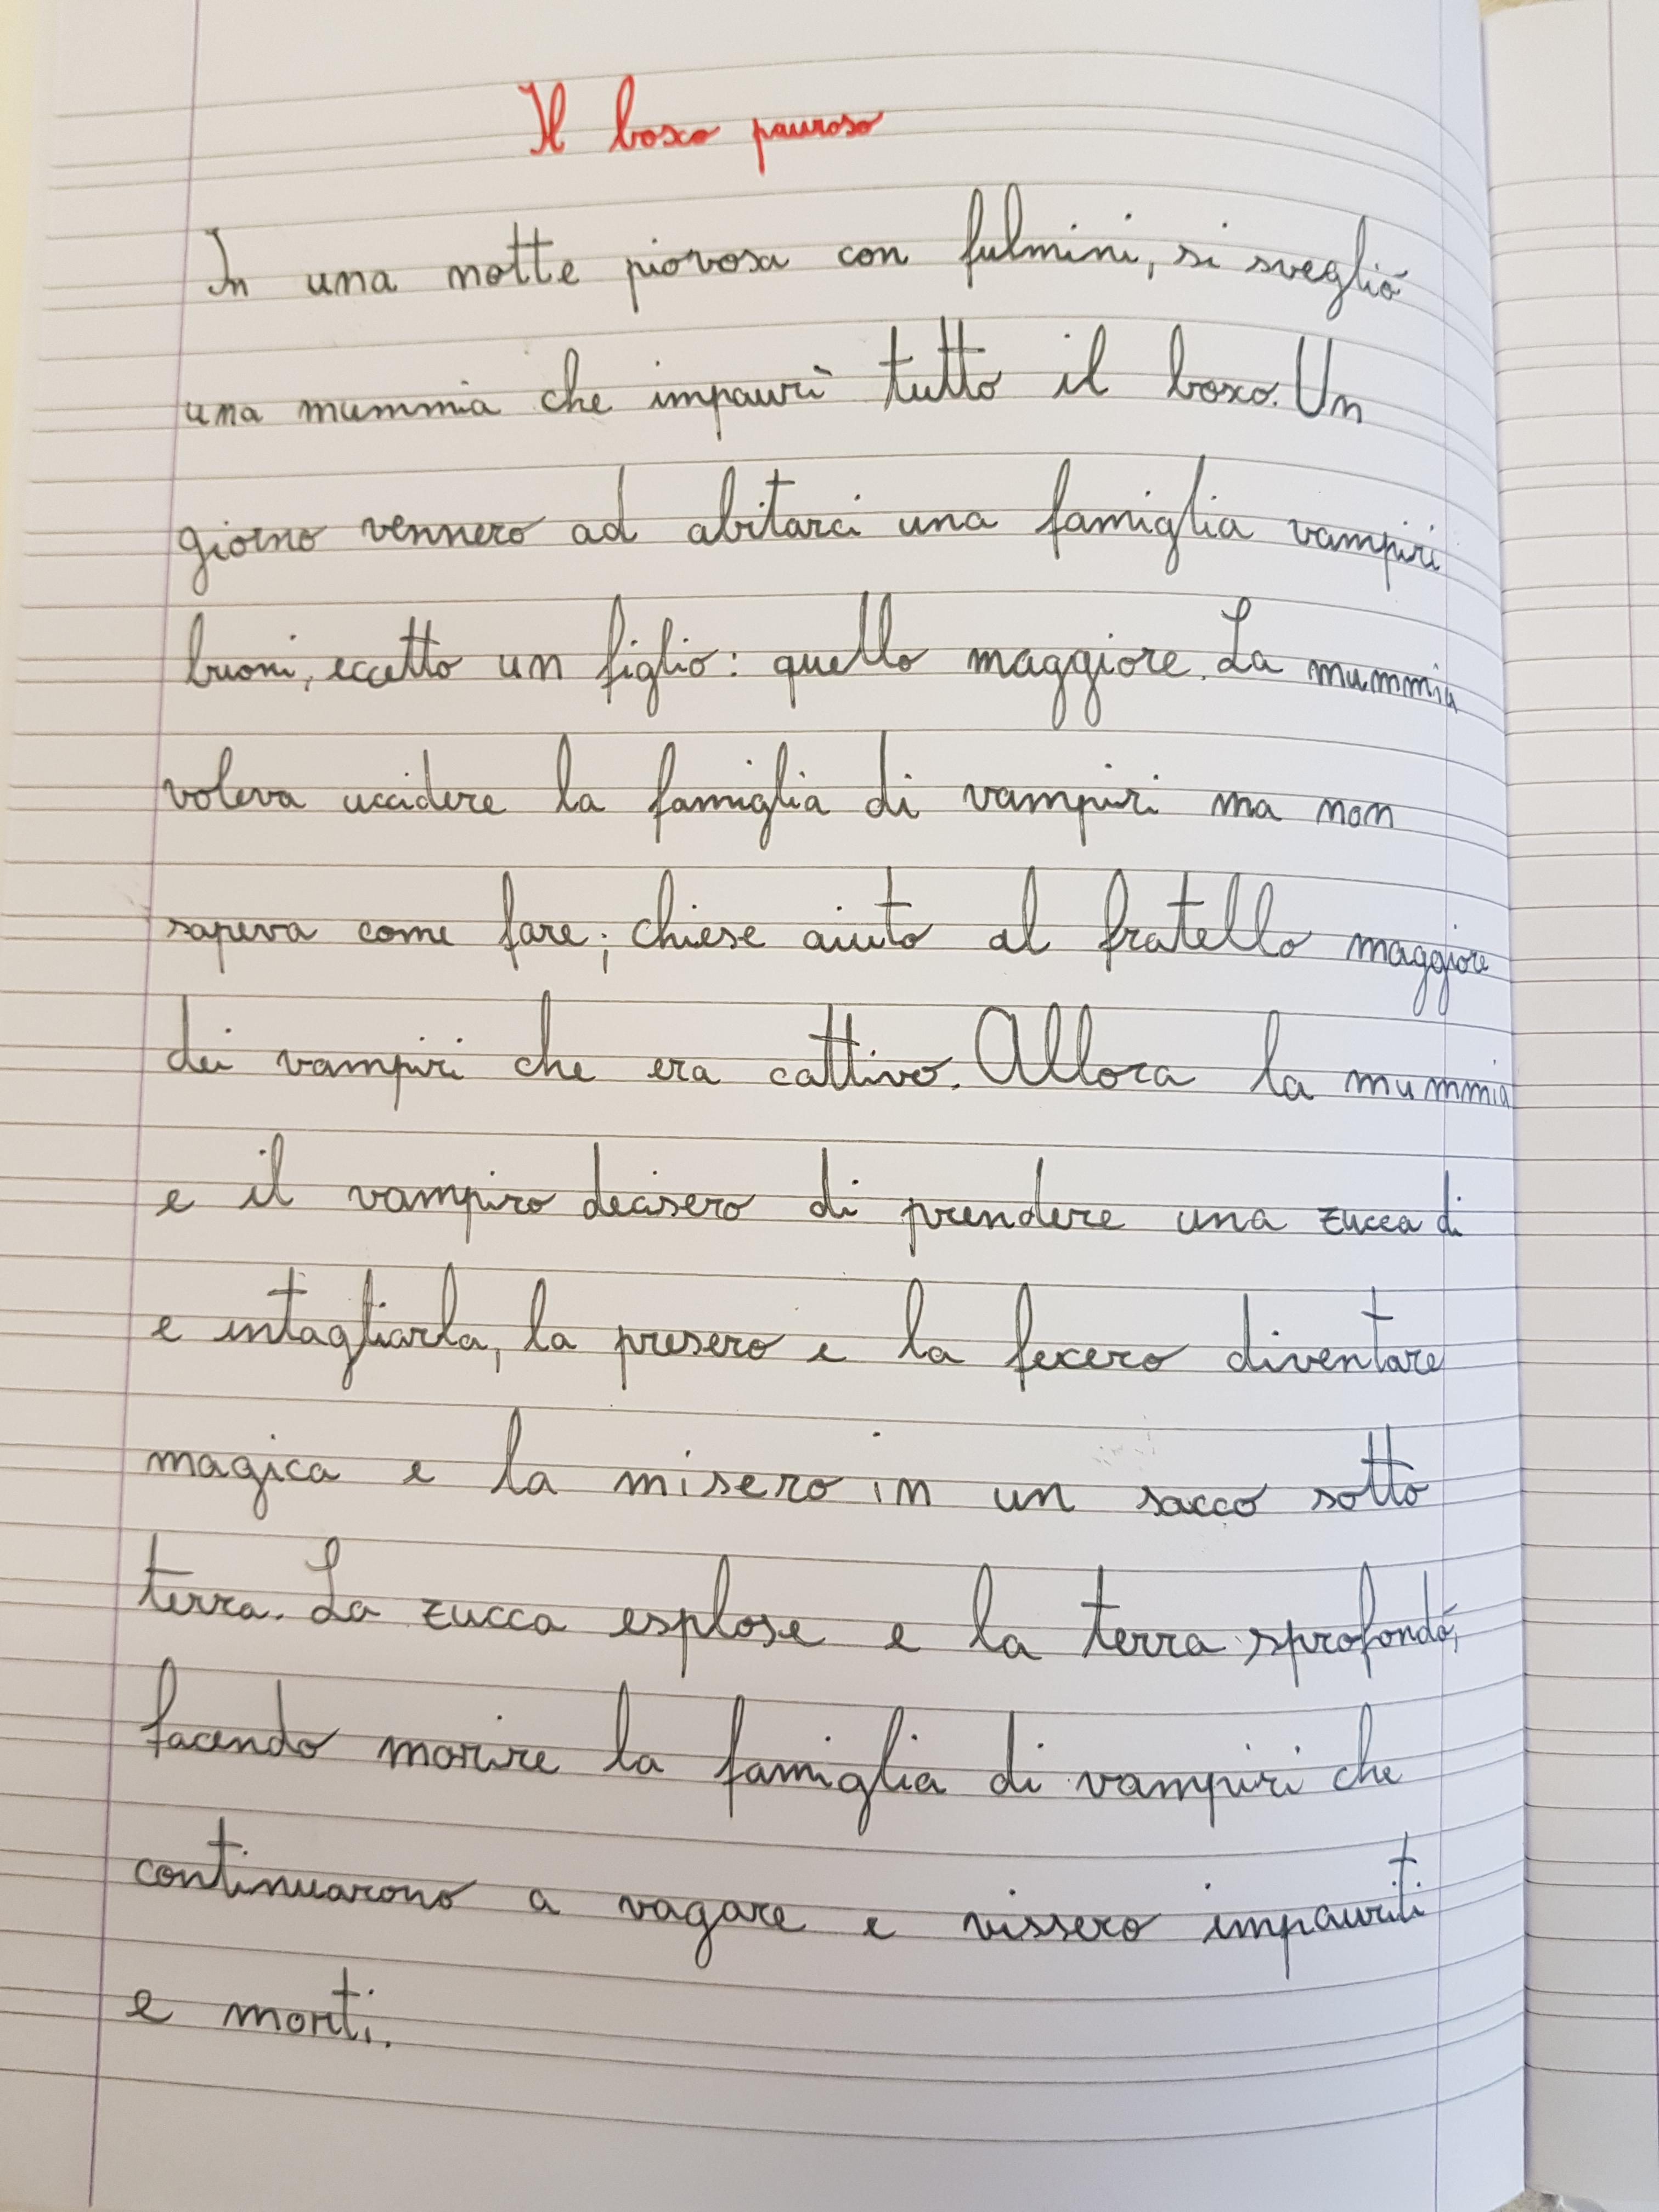 Il bosco pauroso
In una notte piovosa con fulmini, si svegliò
una mummia che impaurì tutto il bosco. Un
giorno vennero ad abitarci una famiglia vampiri
buoni, eccetto un figlio: quello maggiore. La mummia
voleva uccidere la famiglia di vampiri ma non
sapeva come fare; chiese aiuto al fratello maggiore
dei vampiri che era cattivo. Allora la mummia
e il vampiro decisero di prendere una zucca di
e intagliarla, la presero e la fecero diventare
magica e la misero in un sacco sotto
terra. La zucca esplose e la terra sprofondò,
facendo morire la famiglia di vampiri che
continuarono a vagare e vissero impauriti
e morti.